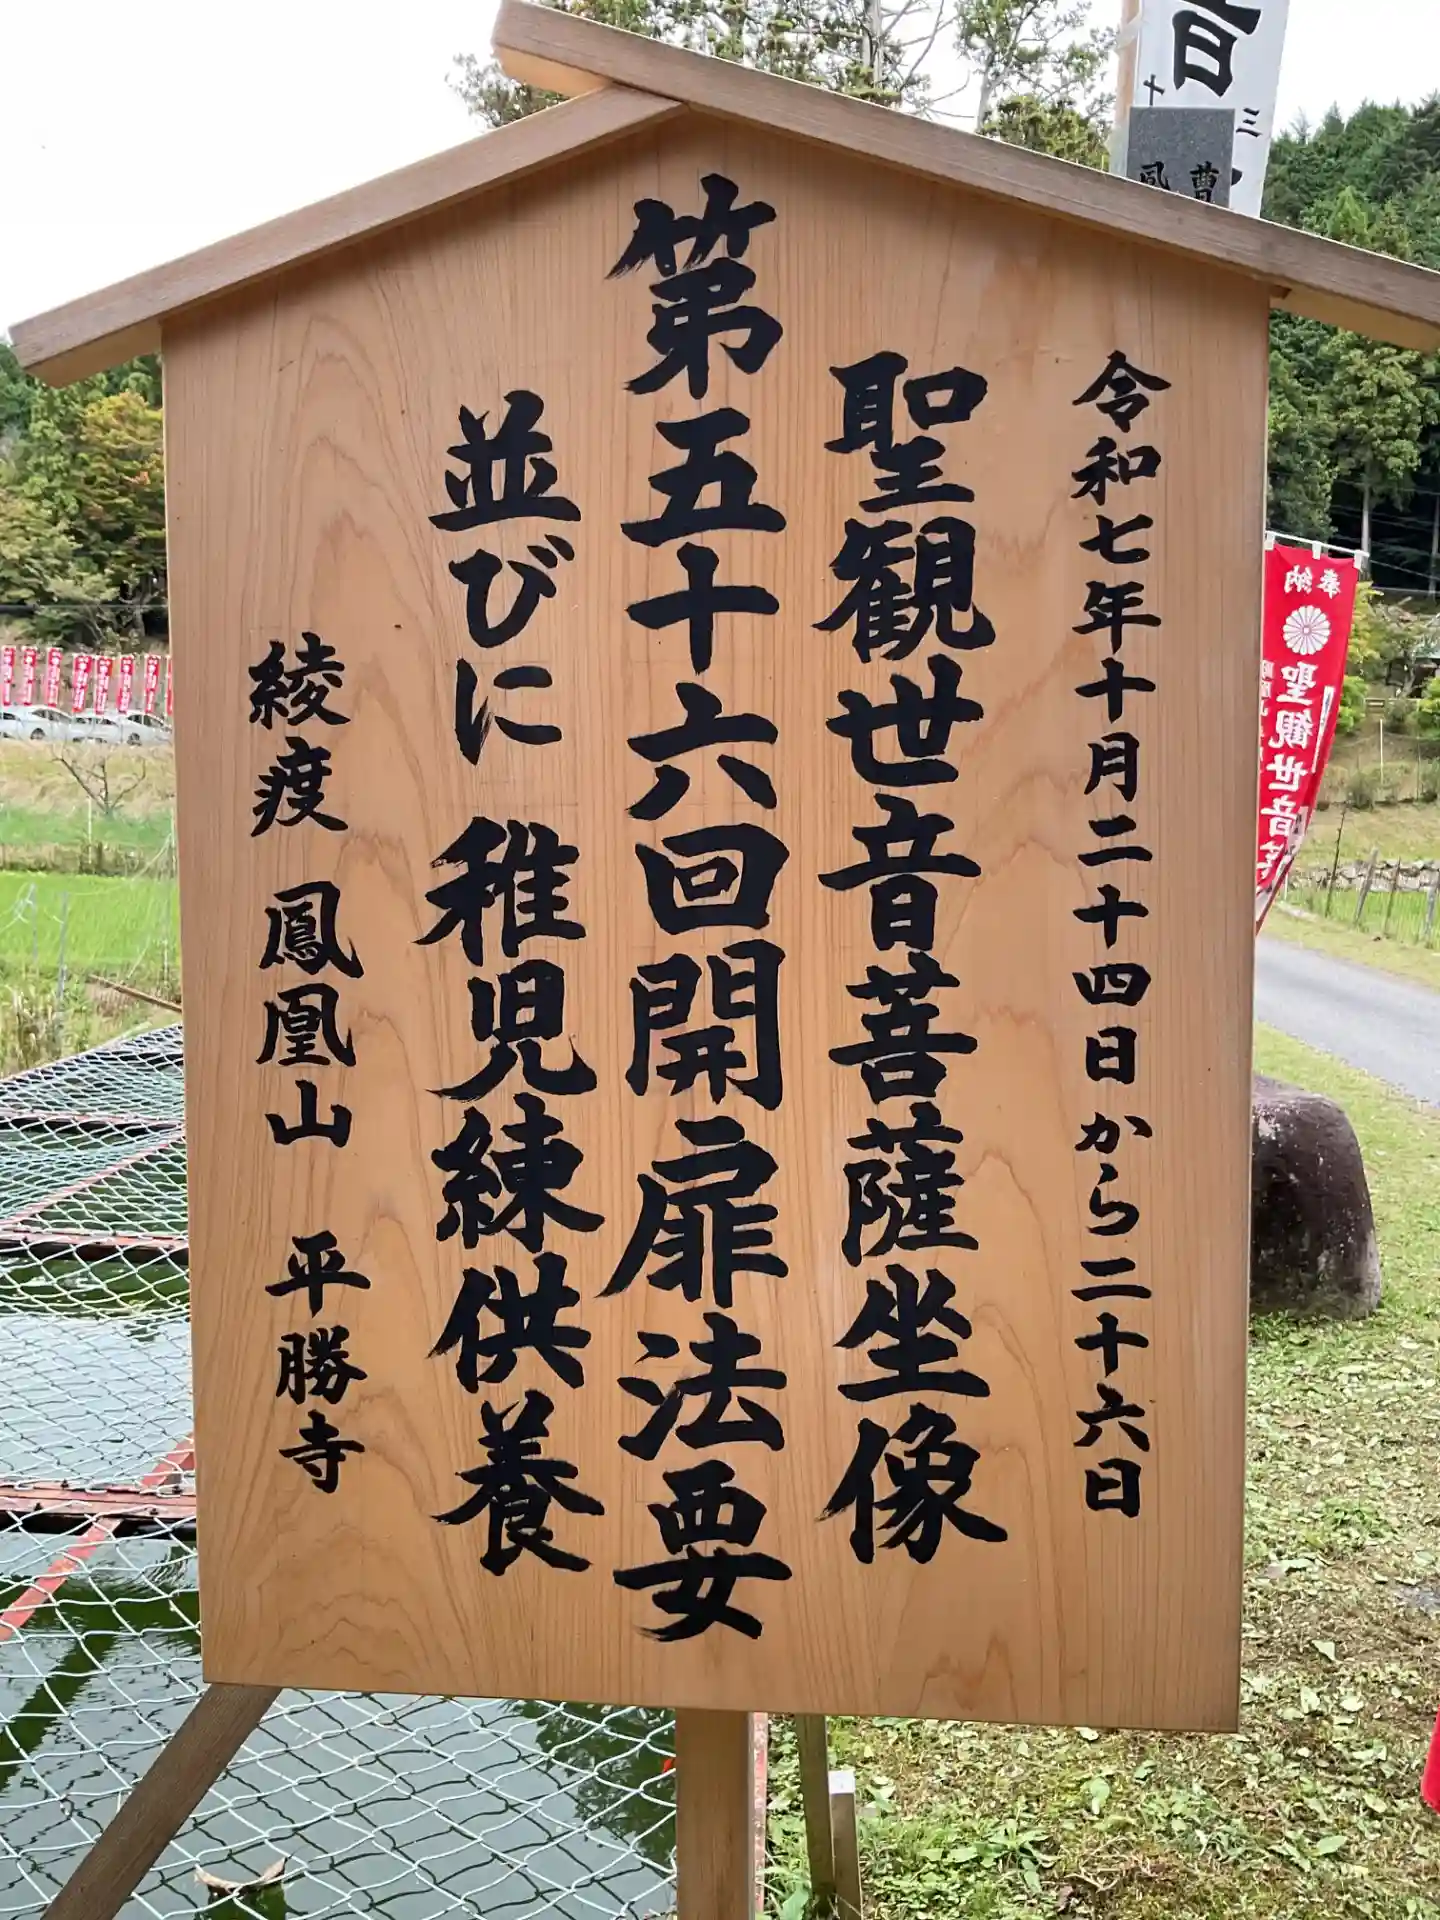 令和七年十月二十四日から二十六日
聖観世音菩薩坐像
第五十六回開扉法要
並びに 稚児練供養
綾渡 鳳凰山 平勝寺
音
奉納
聖観世音菩